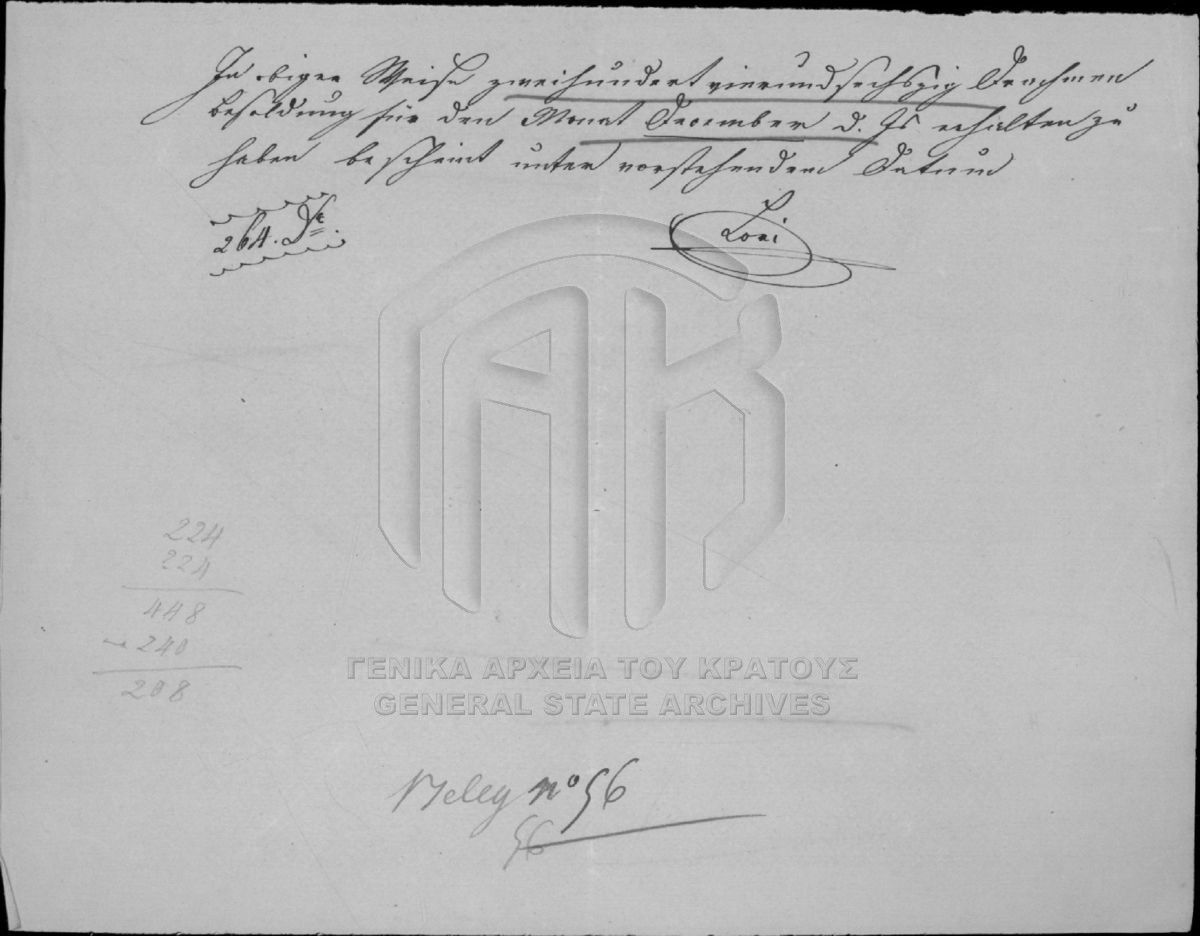 In obiger Weise zweihundertvierundsechszig Drachmen
Besoldung für den Monat December d. Js erhalten zu
haben bescheint unter vorstehendem Datum
264. Dr.
224
224
448
240
208
ΓΕΝΙΚΑ ΑΡΧΕΙΑ ΤΟΥ ΚΡΑΤΟΥΣ
GENERAL STATE ARCHIVES
Beleg no 56
56